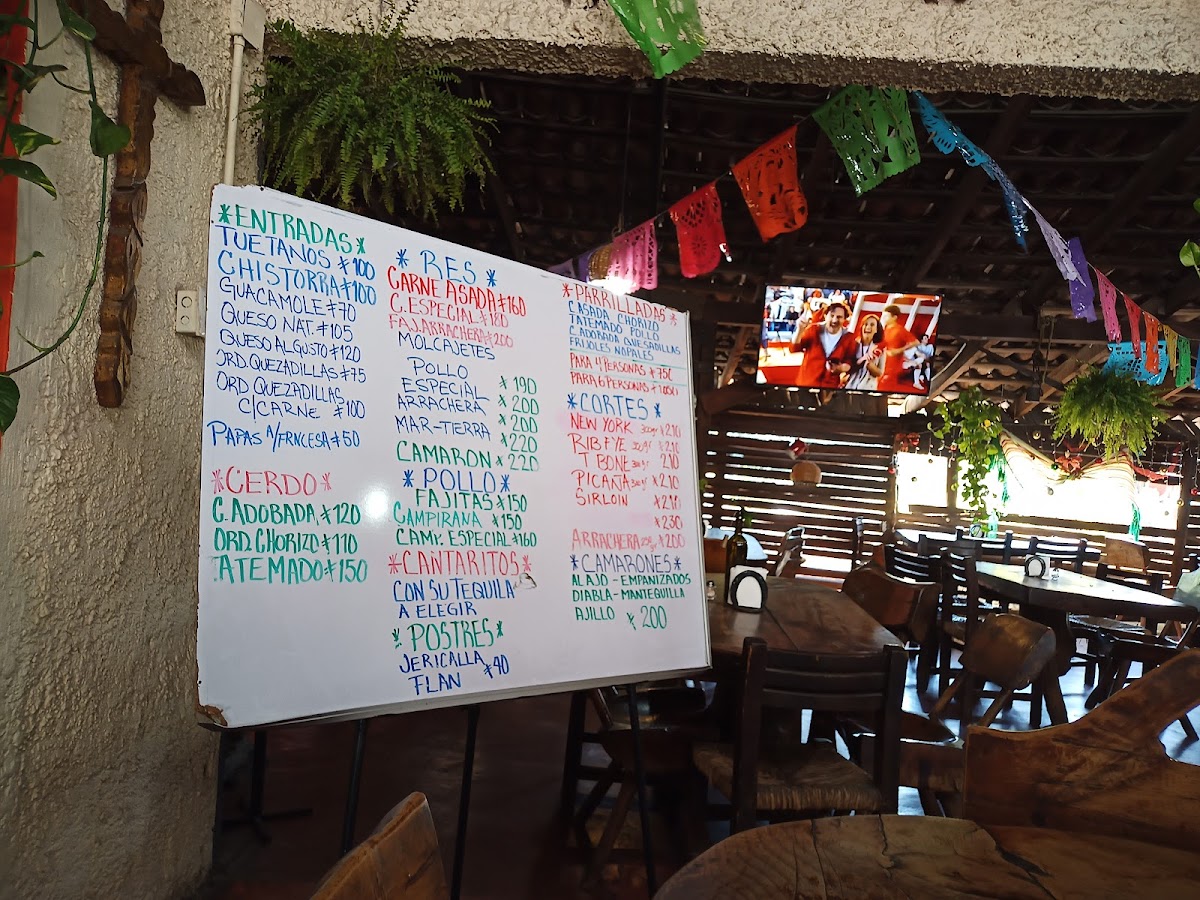 *ENTRADAS*
TUETANOS $100
CHISTORRA $100
GUACAMOLE $70
QUESO NAT. $105
QUESO ALGUSTO $120
ORD. QUEZADILLAS $75
ORD. QUEZADILLAS
C/CARNE $100
PAPAS A/FRNCESA $50
*CERDO*
C. ADOBADA $120
ORD. CHORIZO $110
TATEMADO $150
*RES*
CARNE ASADA $160
C. ESPECIAL $180
FAJ. ARRACHERA $200
MOLCAJETES
POLLO $190
ESPECIAL $200
ARRACHERA $200
MAR-TIERRA $220
CAMARON $220
*POLLO*
FAJITAS $150
CAMPIRANA $150
CAMP. ESPECIAL $160
*CANTARITOS*
CON SU TEQUILA
A ELEGIR
*POSTRES*
JERICALLA $40
FLAN
*PARRILLADAS*
C ASADA CHORIZO
TATEMADO POLLO
C. ADOBADA QUESADILLAS
FRIJOLES NOPALES
PARA 4 PERSONAS $750
PARA 6 PERSONAS $1050
*CORTES*
NEW YORK 300gr $210
RIB EYE 300gr $210
T BONE 300gr 210
PICAÑA $210
SIRLOIN $210
$230
ARRACHERA $200
*CAMARONES*
AL AJO - EMPANIZADOS
DIABLA - MANTEQUILLA
AJILLO $200